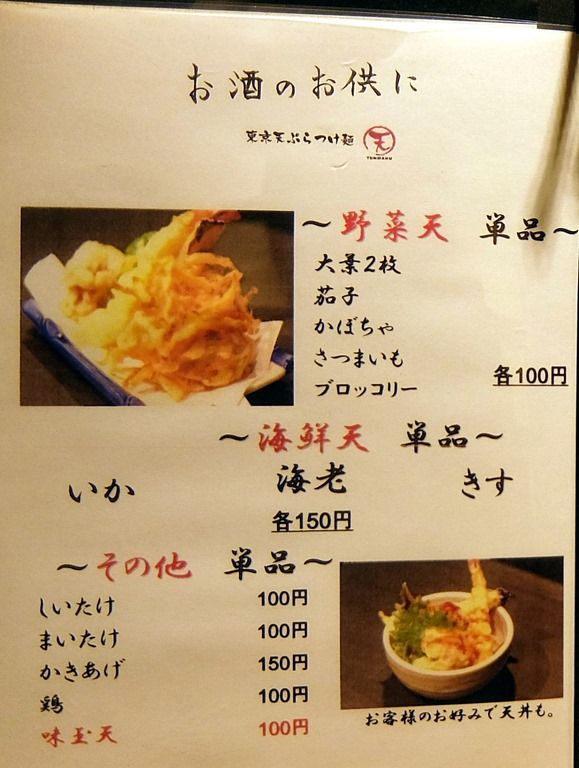 お酒のお供に
東京天ぷらつけ麺 天
～野菜天 単品～
大葉2枚
茄子
かぼちゃ
さつまいも
ブロッコリー
各100円
～海鮮天 単品～
いか 海老 きす
各150円
～その他 単品～
しいたけ 100円
まいたけ 100円
かきあげ 150円
鶏 100円
味玉天 100円
お客様のお好みで天丼も。